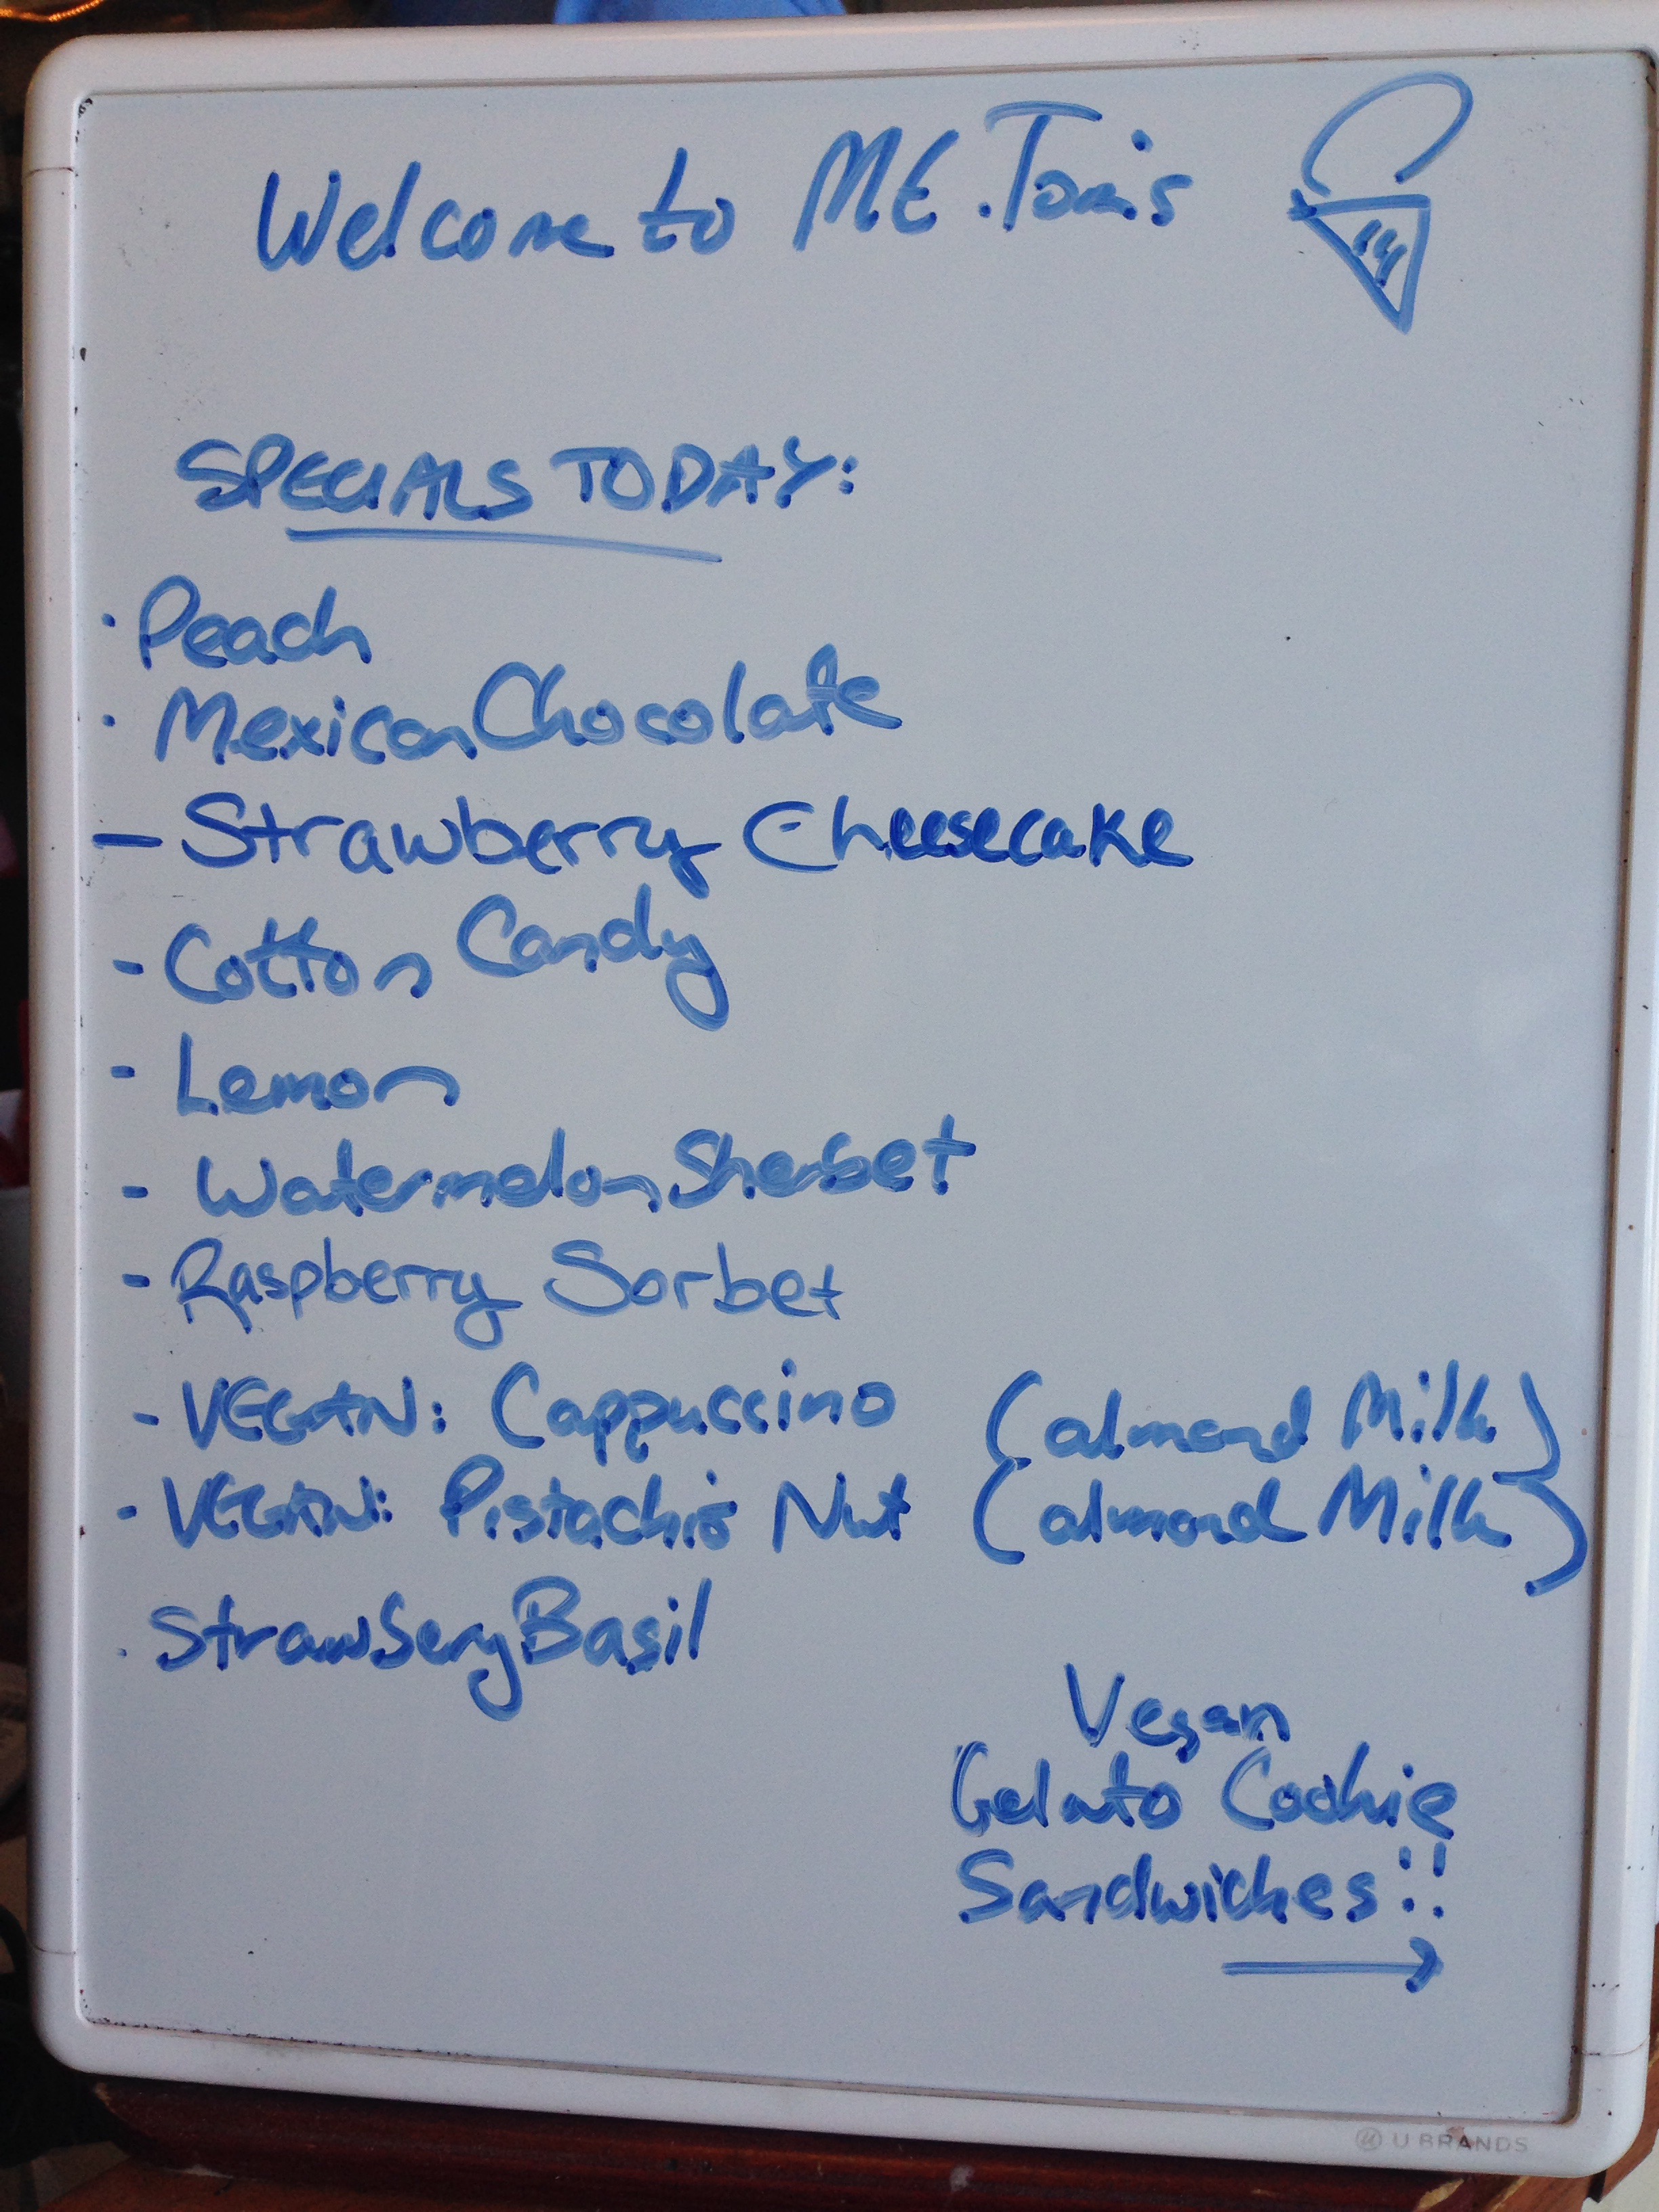 Welcome to
SPECIALS TODAY:
· Peach
· Mexican Chocolate
- Strawberry Cheesecake
- Cotton Candy
- Lemon
- Watermelon Sherbet
- Raspberry Sorbet
- VEGAN: Cappuccino (almond Milk)
- VEGAN: Pistachio Nut (almond Milk)
· Strawbery Basil
Vegan
Gelato Cookie
Sandwiches!!
U BRANDS